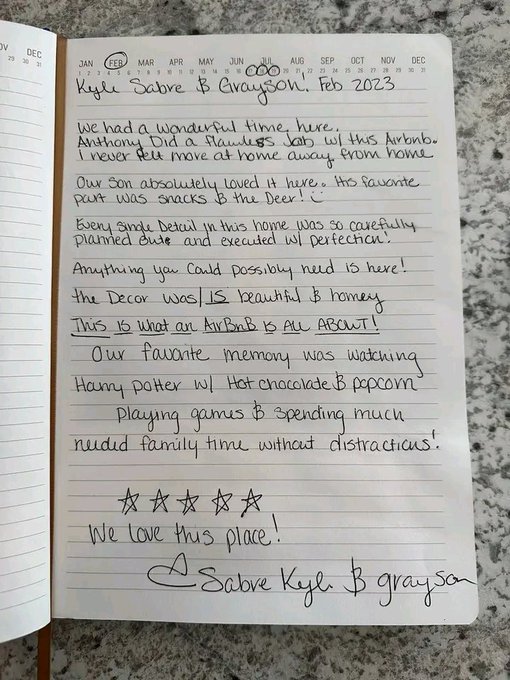 DEC
29 30 31
JAN FEB MAR APR MAY JUN JUL AUG SEP OCT NOV DEC
Kyle Sabre & Grayson! Feb 2023
We had a wonderful time here.
Anthony Did a flawless Job w/ this Airbnb.
I never felt more at home away from home
Our son absolutely loved it here. His favorite
part was snacks & the Deer! :)
Every single Detail in this home was so carefully
planned out and executed w/ perfection!
Anything you could possibly need is here!
the Decor was/IS beautiful & homey
This is what an AirBnB is ALL ABOUT!
Our favorite memory was watching
Harry potter w/ Hot chocolate & popcorn
Playing games & spending much
needed family time without distractions!
We love this place!
Sabre Kyle & grayson